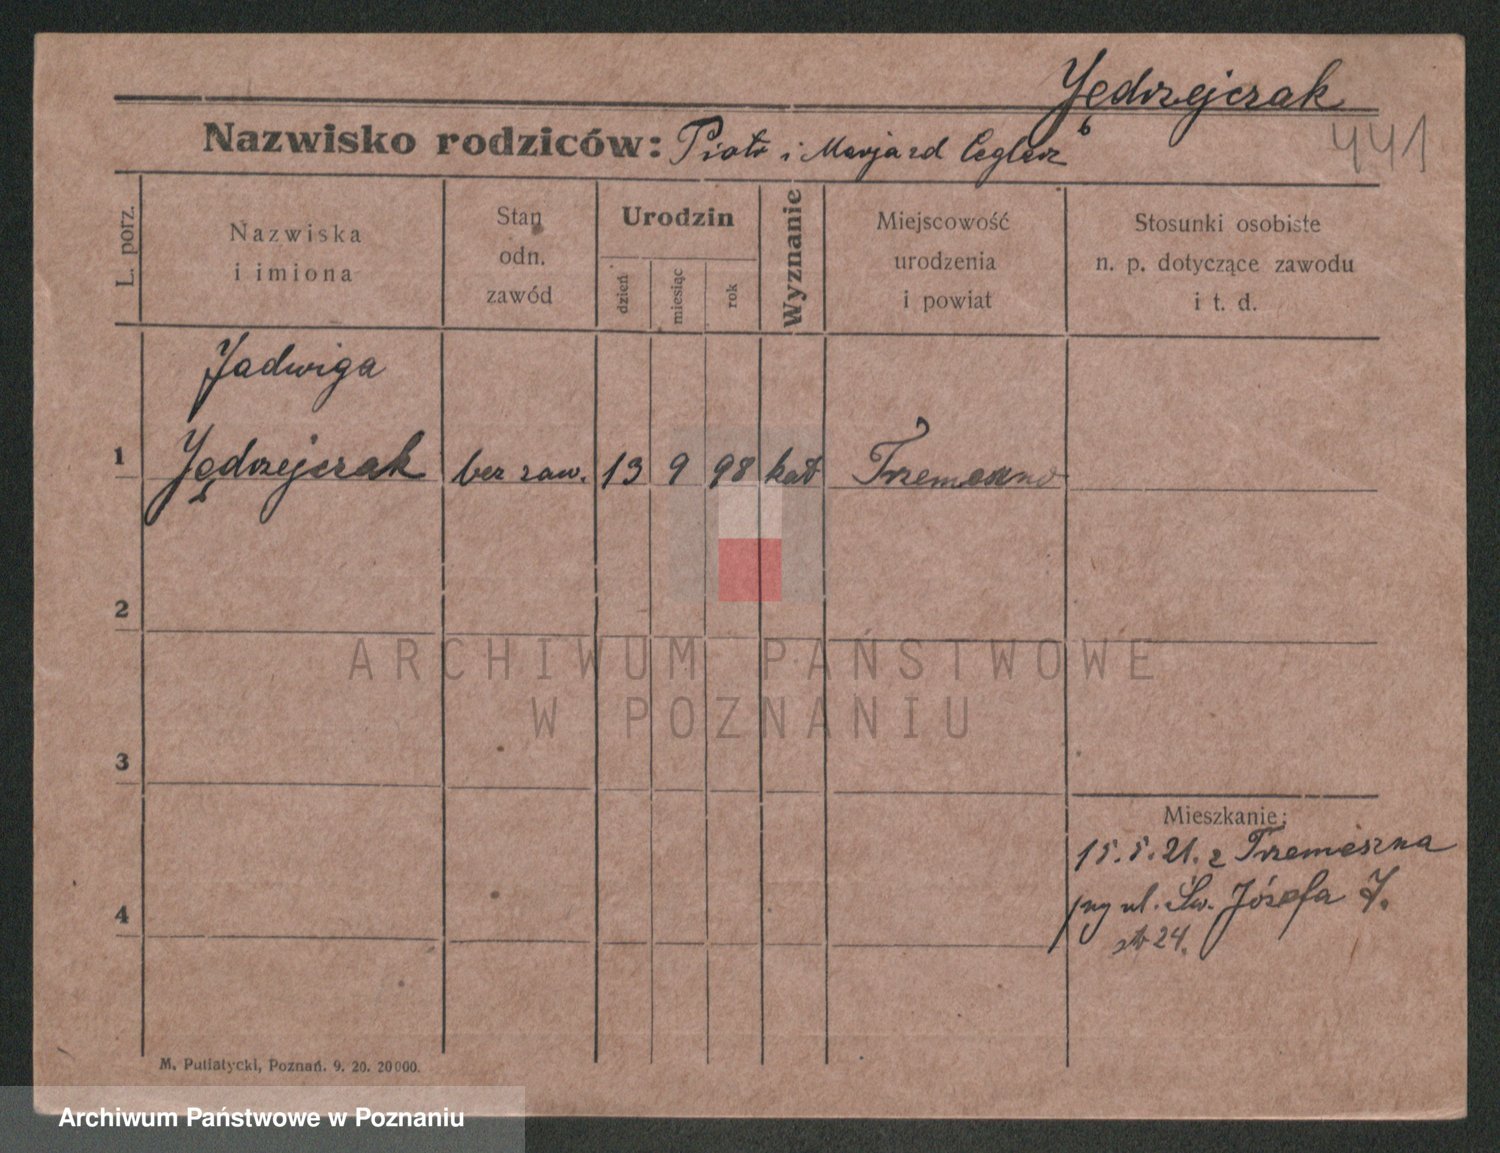 Jędrzejczak
441
Nazwisko rodziców: Piotr i Marja zd Ceglarz
L. porz.
Nazwiska
i imiona
Stan
odn.
zawód
Urodzin
dzień
miesiąc
rok
Wyznanie
Miejscowość
urodzenia
i powiat
Stosunki osobiste
n. p. dotyczące zawodu
i t. d.
Jadwiga
1 Jędrzejczak bez zaw. 13 9 98 kat Trzemeszno
2
3
4
Mieszkanie:
15.5.21. z Trzemeszna
ul. Św. Józefa 7.
24.
M. Putiatycki, Poznań. 9. 20. 20000.
ARCHIWUM PAŃSTWOWE
W POZNANIU
Archiwum Państwowe w Poznaniu